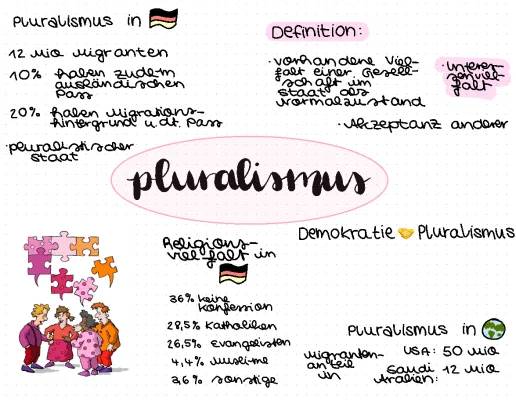 Pluralismus in
12 Mio Migranten
10% haben zudem
ausländischen
Pass
20% haben Migrations-
hintergrund u. dt. Pass
·pluralistischer
Staat
Definition:
·vorhandene Viel-
falt einer Gesell-
schaft im
Staat als
Normalzustand
·Interes-
senviel-
falt
·Akzeptanz anderer
pluralismus
Demokratie Pluralismus
Religions-
vielfalt in
36% keine
Konfession
28,5% Katholiken
26,5% Evangelisten
4,4% Muslime
3,6% sonstige
Pluralismus in
Migranten-
anteil
in
USA: 50 Mio
Saudi 12 Mio
Arabien: